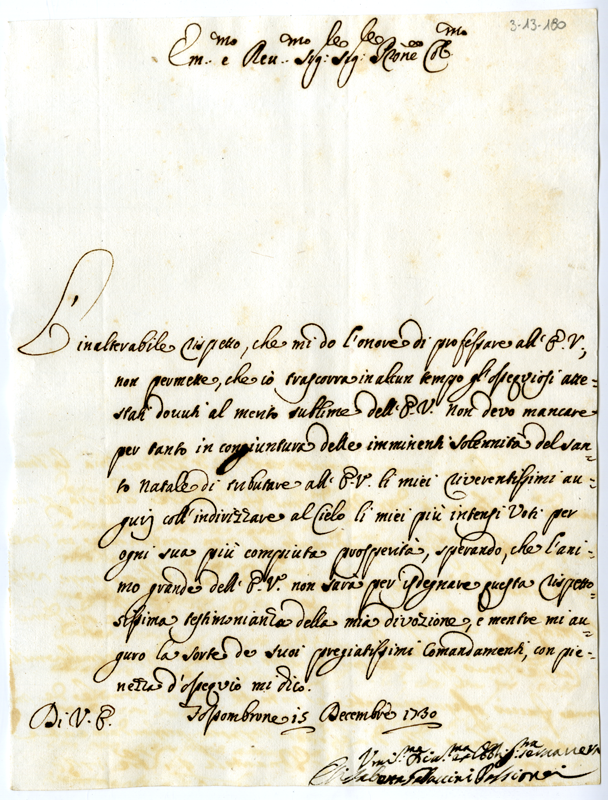 3-13-180
Em.mo e Rev.mo Sig.re Sig.re Prone Col.mo
L'inalterabile rispetto, che mi do l'onore di professare all'E.V.,
non permette, ch'io trascorra in alcun tempo gl'ossequiosi atte=
stati dovuti al merito sublime dell'E.V. Non devo mancare
per tanto in congiuntura delle imminenti solennità del san=
to Natale di tributare all'E.V. li miei riverentissimi au=
gurj coll'indirizzare al Cielo li miei più intensi Voti per
ogni sua più compiuta prosperità, sperando, che l'ani=
mo grande dell'E.V. non sarà per isdegnare questa rispetto=
sissima testimonianza della mia divozione, e mentre mi au=
guro la sorte de suoi pregiatissimi Comandamenti, con pie=
nezza d'ossequio mi dico.
Di V.E. Fossombrone 15 Decembre 1730
Elisabetta Passionei